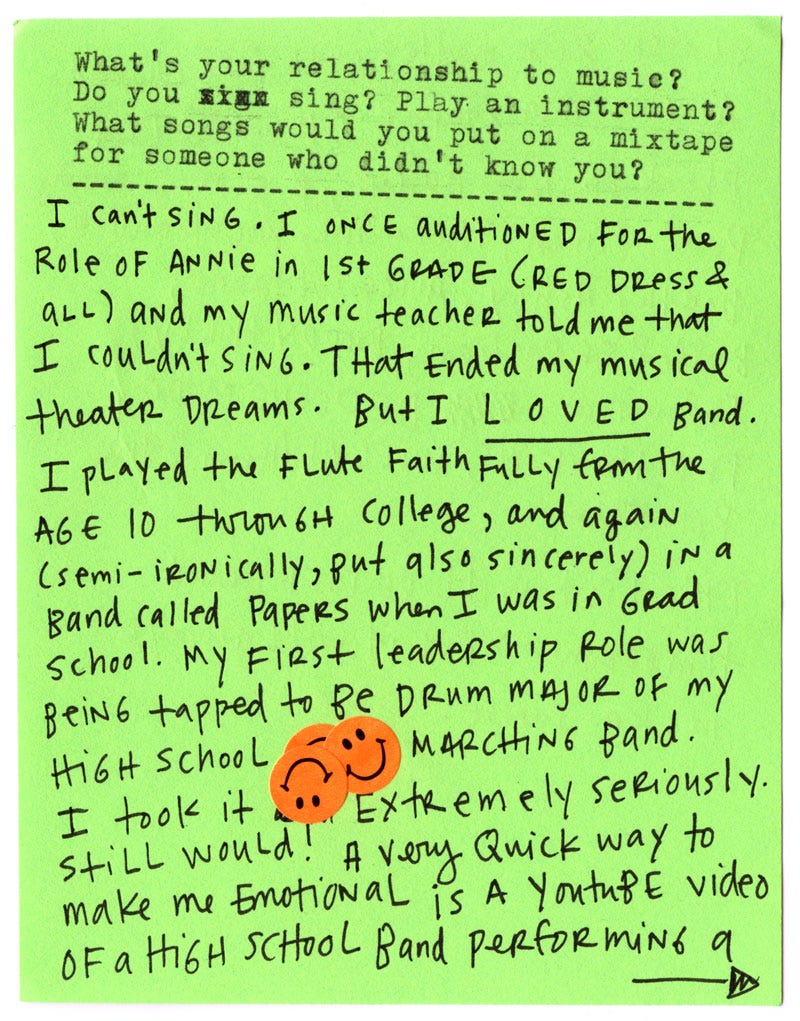 What's your relationship to music?
Do you sing? Play an instrument?
What songs would you put on a mixtape
for someone who didn't know you?
I can't sing. I once auditioned for the
Role of Annie in 1st Grade (Red Dress &
all) and my music teacher told me that
I couldn't sing. That ended my musical
theater Dreams. But I LOVED Band.
I played the Flute Faithfully from the
Age 10 through College, and again
(semi-ironically, but also sincerely) in a
Band called Papers when I was in Grad
School. My first leadership Role was
Being tapped to be Drum Major of my
High School Marching Band.
I took it Extremely seriously.
Still would! A very Quick way to
make me Emotional is A Youtube video
of a High School Band performing a